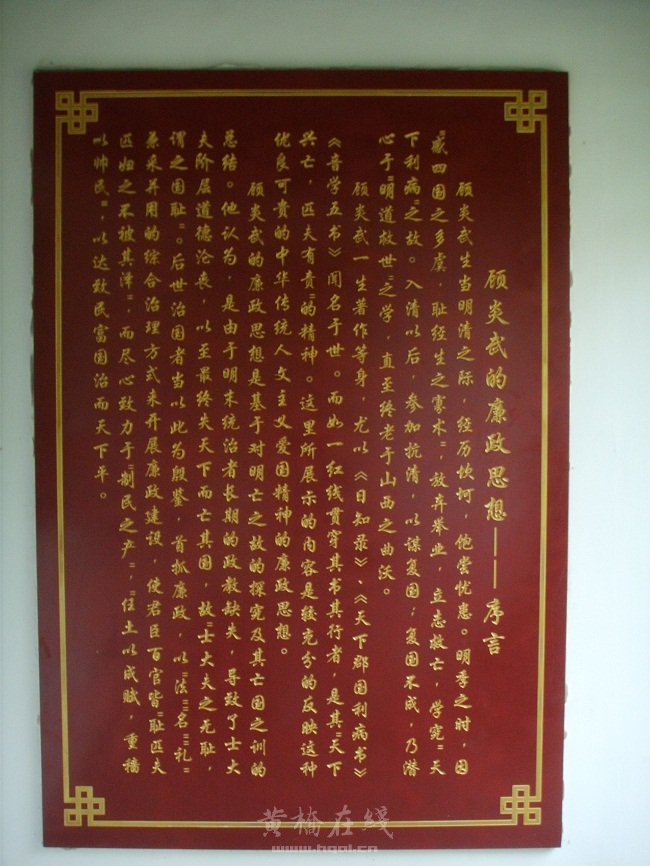 顾炎武的廉政思想——序言
顾炎武生当明清之际，经历坎坷，饱尝忧患。明季之时，因
"感四国之多虞，耻经生之寡术"，放弃举业，立志救亡，学究"天
下利病"之故。入清以后，参加抗清，以谋复国；复国不成，乃潜
心于"明道救世"之学，直至终老于山西之曲沃。
顾炎武一生著作等身，尤以《日知录》、《天下郡国利病书》
《音学五书》闻名于世。而如一红线贯穿其书其行者，是其"天下
兴亡，匹夫有责"的精神。这里所展示的内容是较充分的反映这种
优良可贵的中华传统人文主义爱国精神的廉政思想。
顾炎武的廉政思想是基于对明亡之故的探究及其亡国之训的
总结。他认为，是由于明末统治者长期的政教缺失，导致了士大
夫阶层道德沦丧，以至最终失天下而亡其国，故"士大夫之无耻，
谓之国耻"。后世治国者当以此为殷鉴，首抓廉政，以"法""名""礼"
兼采并用的综合治理方式来开展廉政建设，使君臣百官皆"耻匹夫
匹妇之不被其泽"，而尽心致力于"制民之产"，"任土以成赋，重穑
以帅民"，以达致民富国治而天下平。
黄桥在线
www.hqol.cn